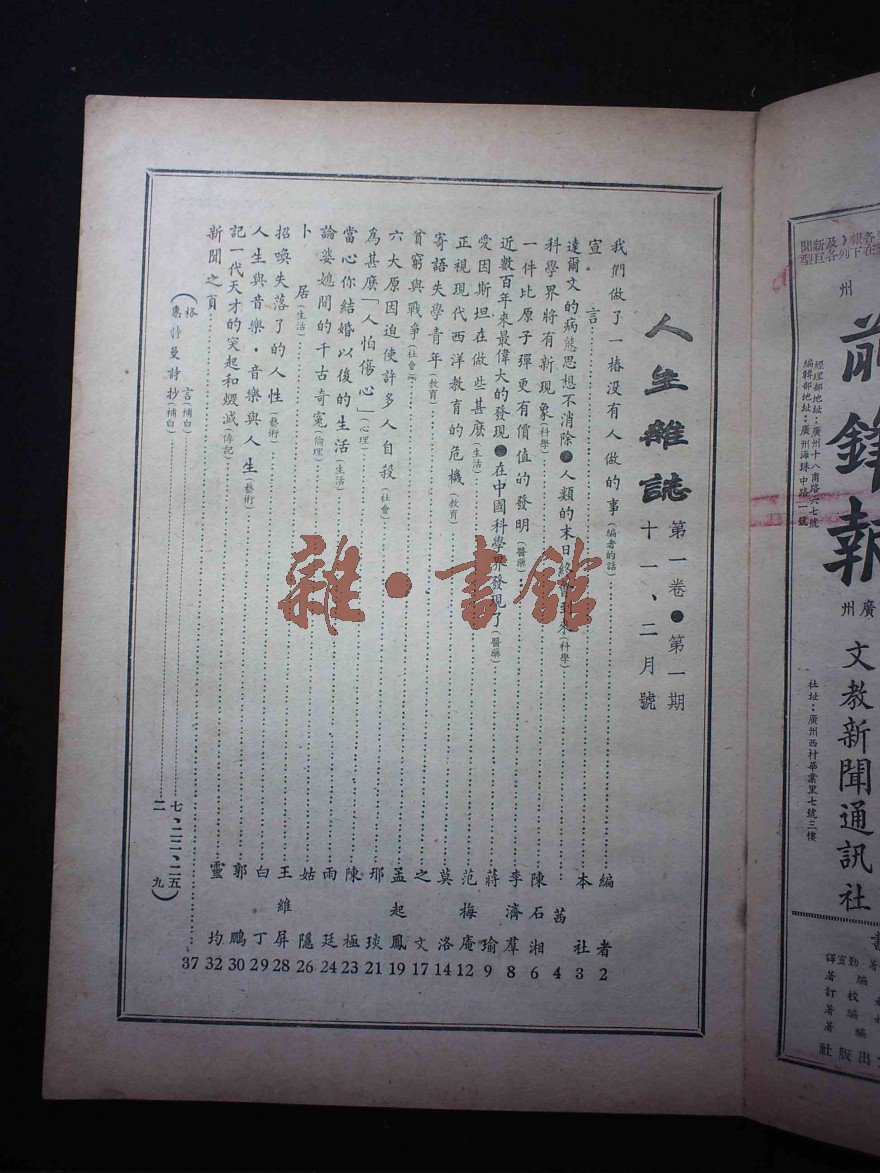 前鋒報
經理部地址：廣州十八甫路六七號
編輯部地址：廣州海珠中路一號
廣州
文教新聞通訊社
社址：廣州西村華業里七號三樓
人生雜誌
第一卷●第一期
十一、二月號
我們做了一樁沒有人做的事(編者的話)………編者 2
宣言………本社 3
達爾文的病態思想不消除●人類的末日終會到來(科學)………茜 4
科學界將有新現象(科學)………陳石湘 6
一件比原子彈更有價值的發明(醫藥)………李濟羣 8
近數百年來最偉大的發現●在中國科學界發現了(醫藥)………蔣瑜 9
愛因斯坦在做些甚麽(生活)………范梅庵 12
正視現代西洋教育的危機(教育)………莫洛 14
寄語失學青年(教育)………之文 17
貧窮與戰爭(社會)………孟起鳳 19
六大原因迫使許多人自殺(社會)………邢琰 21
為甚麽「人怕傷心」(心理)………陳極 23
當心你結婚以後的生活(生活)………雨廷 24
論婆媳間的千古奇冤(倫理)………姑隱 26
卜居(生活)………王維屏 28
招喚失落了的人性(藝術)………白丁 29
人生與音樂·音樂與人生(藝術)………郭鵬 30
記一代天才的突起和煅滅(傳記)………靈均 32
新聞之頁………37
(格言(補白)………七、二二、二五
惠特曼詩抄(補白)………二九)
雜·書館